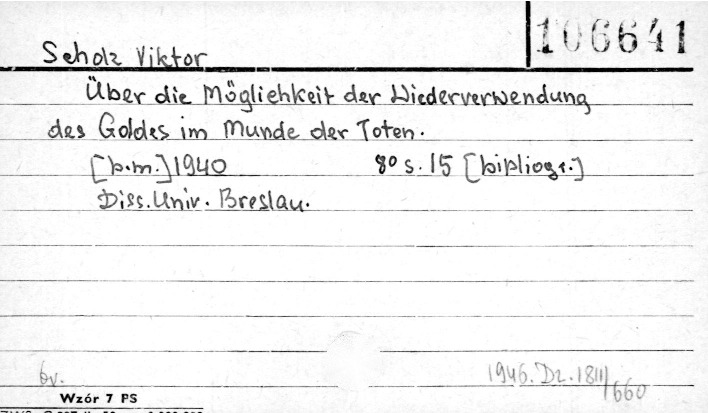 106641
Scholz Viktor
Über die Möglichkeit der Wiederverwendung
des Goldes im Munde der Toten.
[b.m.] 1940 8° s. 15 [bibliogr.]
Diss. Univ. Breslau.
bv. 1946. Dz. 1811/660
Wzór 7 PS